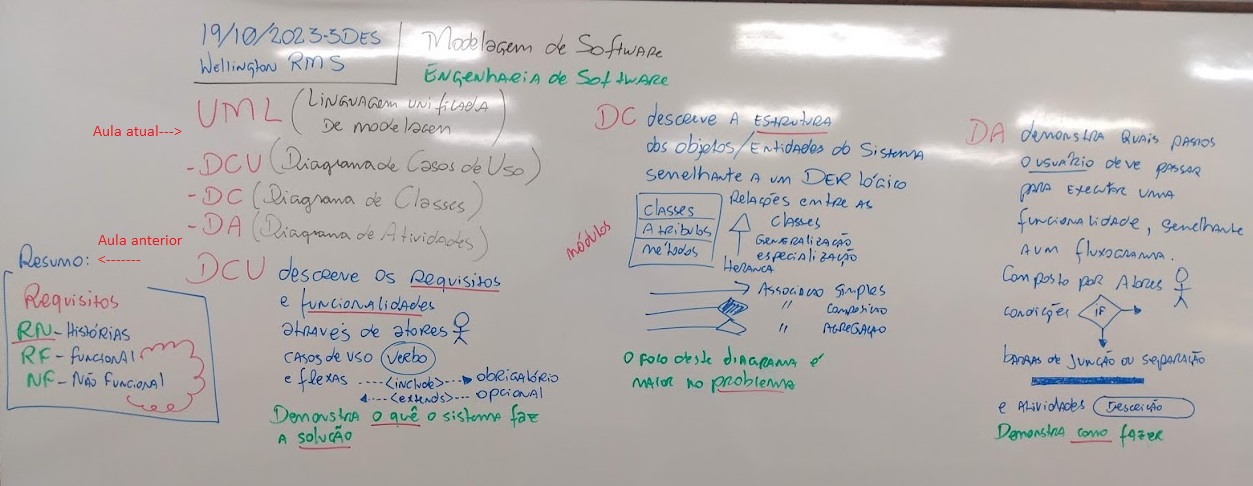 19/10/2023-3DES
Wellington RMS
Modelagem de Software
Engenharia de Software
Aula atual--->
UML (Linguagem unificada
De modelagem)
- DCU (Diagrama de Casos de Uso)
- DC (Diagrama de Classes)
- DA (Diagrama de Atividades)
Aula anterior
<-------
Resumo:
Requisitos
RN - Histórias
RF - Funcional
NF - Não Funcional
DCU descreve os Requisitos
e funcionalidades
através de atores
casos de uso Verbo
e flexas ----<include>---> obrigatório
<---<extends>---- opcional
Demonstra o quê o sistema faz
A solução
DC descreve A Estrutura
dos objetos/Entidades do Sistema
semelhante A um DER lógico
módulos
classes
Atributos
métodos
Relações entre as
classes
Generalização
especialização
Herança
Associação Simples
" Composição
" Agregação
O foco deste diagrama é
maior no problema
DA demonstra quais passos
o usuário deve passar
para executar uma
funcionalidade, semelhante
a um fluxograma.
Composto por Atores
condições IF
barras de junção ou separação
e Atividades Descrição
Demonstra como fazer